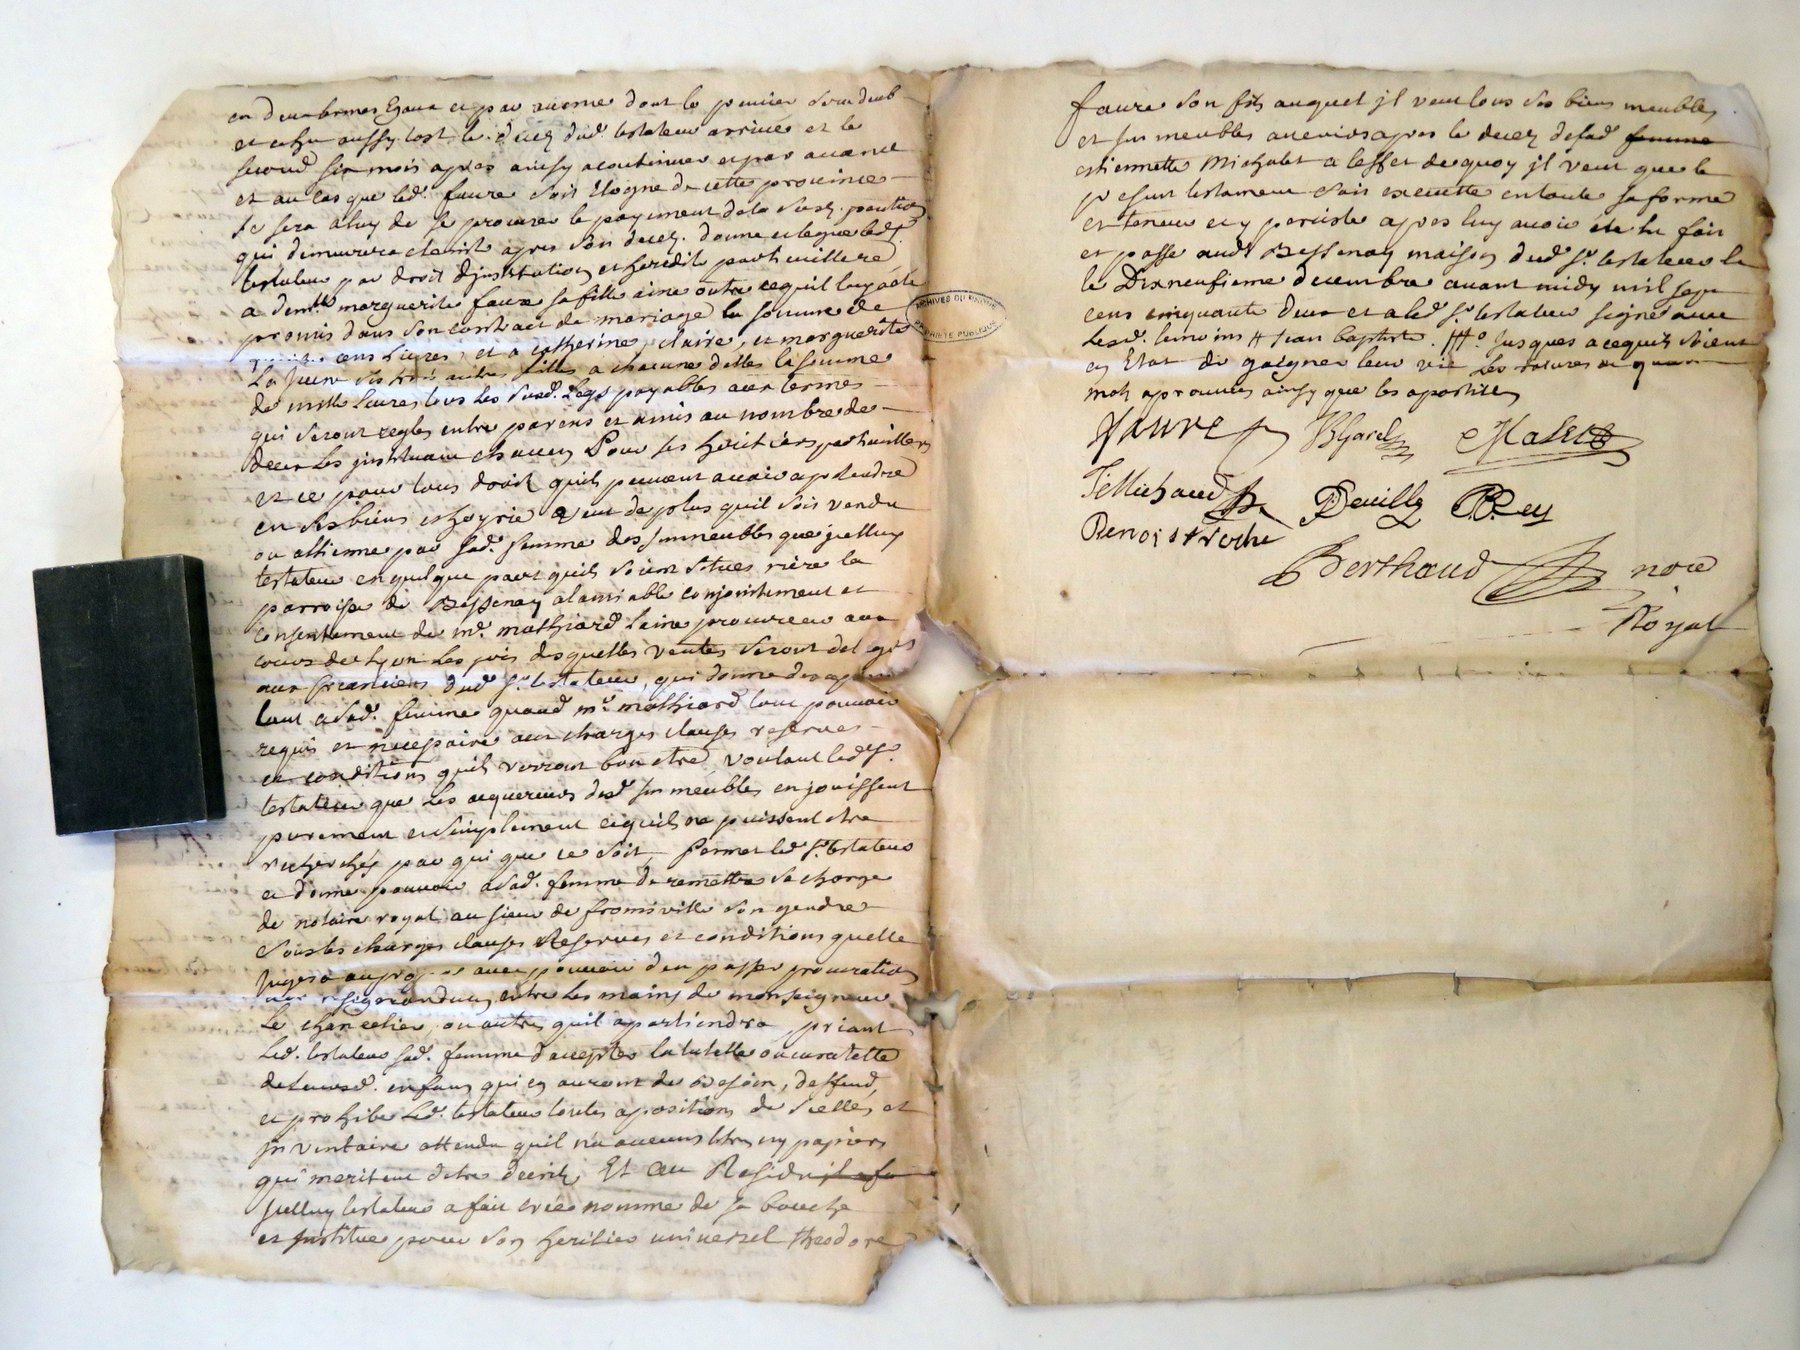 en deux termes Egaux et par avance dont le premier sera deub
et echu aussy tost le decez dud. testateur arrivé et le
second six mois apres ainsy a continuer et par avance
et au cas que led. faure soit Elogné de cette province
se sera a luy de se procurer le payement de la susd. pention
qui demeurera eteinte apres son decez. donne et legue led. Sr.
testateur par droit d'institution et heredité particuliere
a demlle marguerite faure sa fille ainé outre ce quil luy a été
promis dans son contract de mariage la somme de
cens livres, et a catherine, claire, et marguerite
faure ses trois autres filles a chacune d'elles la somme
de mille livres tous les susd. Legs payables aux termes
qui seront reglés entre parens et amis au nombre de
deux les instituant chacun Pour ses heritiers particuliers
et ce pour tous droits quils peuvent avoir a pretendre
en ses biens et hoyrie Veut de plus quil soit vendu
ou allienne par sad. femme des immeubles que jcelluy
testateur en quelque part quils soient situes riere la
parroisse de Bessenay a lamiable conjointement et
consentement de me. mathiard laine procureur aux
cours de Lyon Les prix desquelles ventes seront delegués
aux creanciers dud. Sr. testateur, qui donne des a present
tant a sad. femme quaud. me. mathiard tout pouvoir
requis et necessaire aux charges clauses reserves
et conditions quils verront bon etre, voulant led. Sr.
testateur que les acquereurs desd. immeubles en jouissent
purement et simplement et quils ne puissent etre
recherchés par qui que ce soit, Permet led. Sr. testateur
et donne pouvoir a sad. femme de remettre sa charge
de notaire royal au sieur de fromiville son gendre
sous les charges clauses Reserves et conditions quelle
Jugera avec pouvoir d'en passer procuration
entre les mains de monseigneur
Le chancelier, ou autre quil apartiendra, priant
Led. testateur sad. femme d'accepter la tutelle ou curatelle
de leursd. enfans qui en auront de Besoin, deffend,
et prohibe Led. testateur toutes apositions de scellés et
jnventaire attendu quil n'a aucuns titres ny papiers
qui meritent detre decrits, Et au Residu
jcelluy testateur a fait créé nommé de sa bouche
et jnstitue pour son heritier universel theodore
faure son fils auquel jl veut tous ses biens meubles
et jmmeubles avenir apres le decez de sad. femme
etiennette Michalet a leffet de quoy jl veut que le
present testament soit executté en toute sa forme
et teneur et y persiste apres luy avoir été lu fait
et passé aud. Bessenay maison dud. Sr. testateur le
le Dixneufieme decembre avant midy mil sept
cens cinquante deux et a led. Sr. testateur signé avec
lesd. temoins # jean baptiste. ## jusques a ce quils soient
en Etat de gaigner leur vie Les ratures de quatre
mots aprouvées ainsy que les apostilles
Faure
JB Garel
Michaud
Deville
P. Rey
Benoist Roche
Berthaud nore
Royal
ARCHIVES DU RHONE
PROPRIETE PUBLIQUE